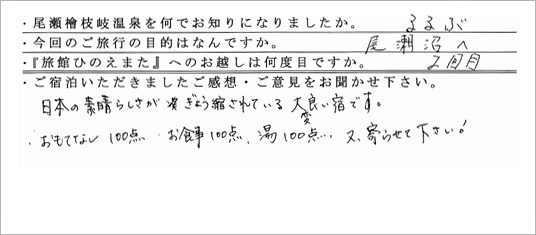 ・尾瀬檜枝岐温泉を何でお知りになりましたか。 るるぶ
・今回のご旅行の目的はなんですか。 尾瀬沼へ
・『旅館ひのえまた』へのお越しは何度目ですか。 2回目
・ご宿泊いただきましたご感想・ご意見をお聞かせ下さい。
日本の素晴らしさが凝ぎょう縮されている大変良い宿です。
・おもてなし 100点・お食事100点、湯100点、又、寄らせて下さい!